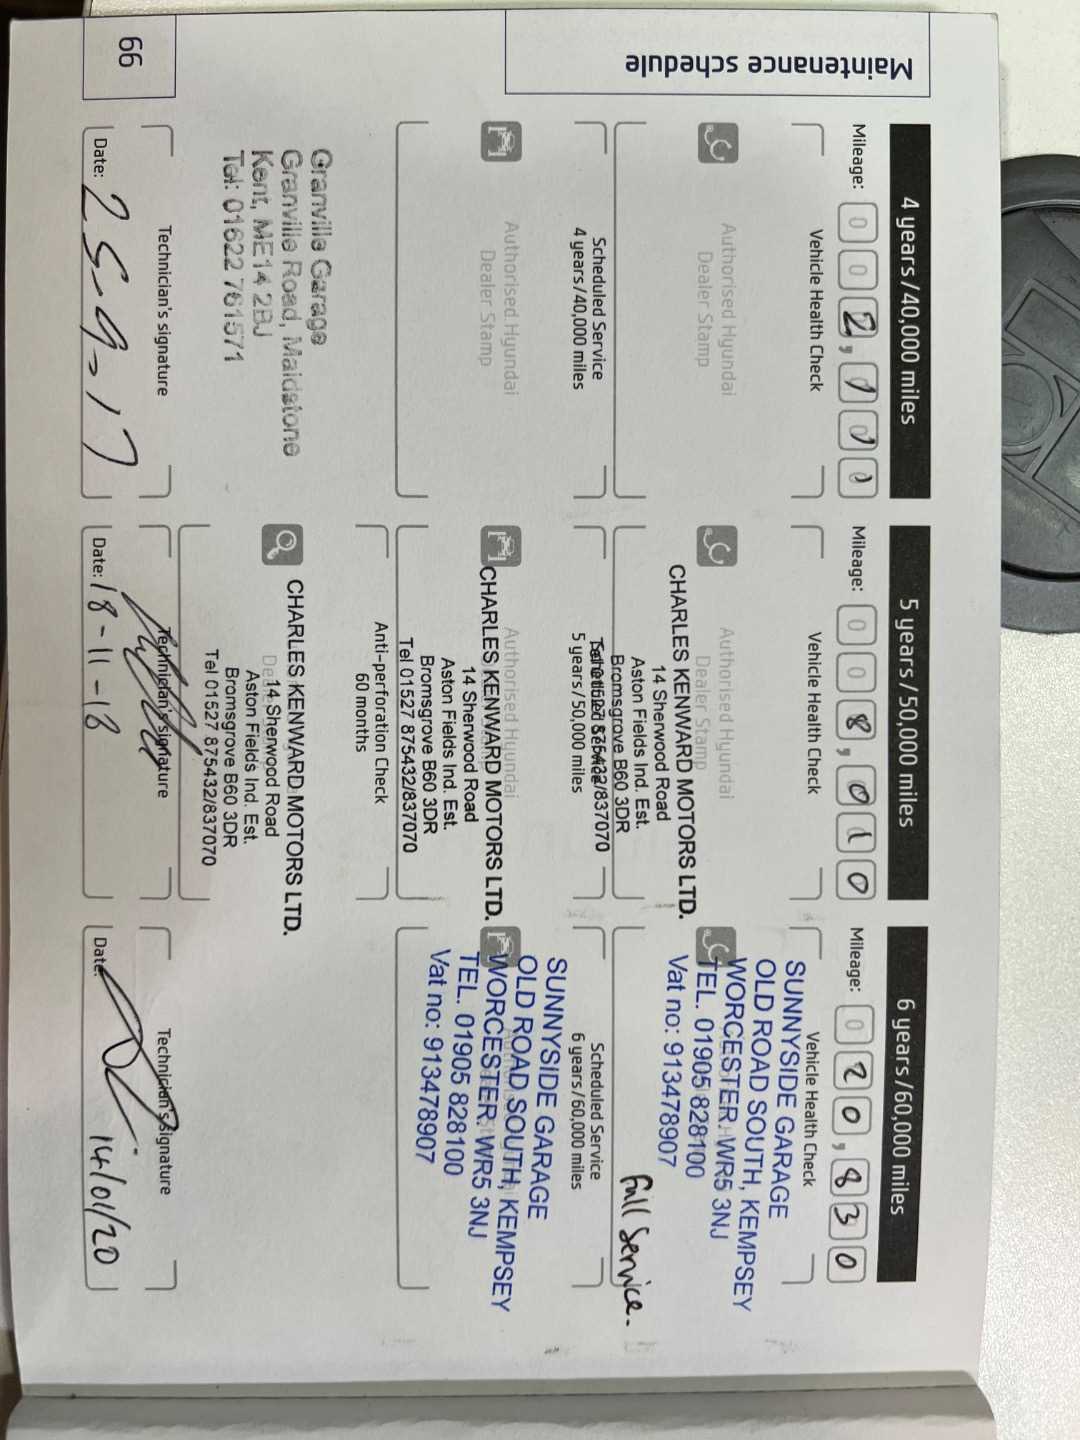 Maintenance schedule
66
4 years/40,000 miles
Mileage: 002,
Vehicle Health Check
Authorised Hyundai
Dealer Stamp
Scheduled Service
4 years/40,000 miles
Authorised Hyundai
Dealer Stamp
Granville Garage
Granville Road, Maidstone
Kent, ME14 2BJ
Tel: 01622 761571
Technician's signature
Date: 25-9-17
5 years/50,000 miles
Mileage: 008,010
Vehicle Health Check
Authorised Hyundai
Dealer Stamp
CHARLES KENWARD MOTORS LTD.
14 Sherwood Road
Aston Fields Ind. Est.
Bromsgrove B60 3DR
Tel 01527 875432/837070
Scheduled Service
5 years/50,000 miles
Authorised Hyundai
CHARLES KENWARD MOTORS LTD.
14 Sherwood Road
Aston Fields Ind. Est.
Bromsgrove B60 3DR
Tel 01527 875432/837070
Anti-perforation Check
60 months
CHARLES KENWARD MOTORS LTD.
14 Sherwood Road
Aston Fields Ind. Est.
Bromsgrove B60 3DR
Tel 01527 875432/837070
Technician's signature
Date: 18-11-18
6 years/60,000 miles
Mileage: 020,830
Vehicle Health Check
SUNNYSIDE GARAGE
OLD ROAD SOUTH, KEMPSEY
WORCESTER. WR5 3NJ
TEL. 01905 828100
Vat no: 913478907
Full Service.
Scheduled Service
6 years/60,000 miles
SUNNYSIDE GARAGE
OLD ROAD SOUTH, KEMPSEY
WORCESTER. WR5 3NJ
TEL. 01905 828100
Vat no: 913478907
Technician's signature
Date: 14/01/20